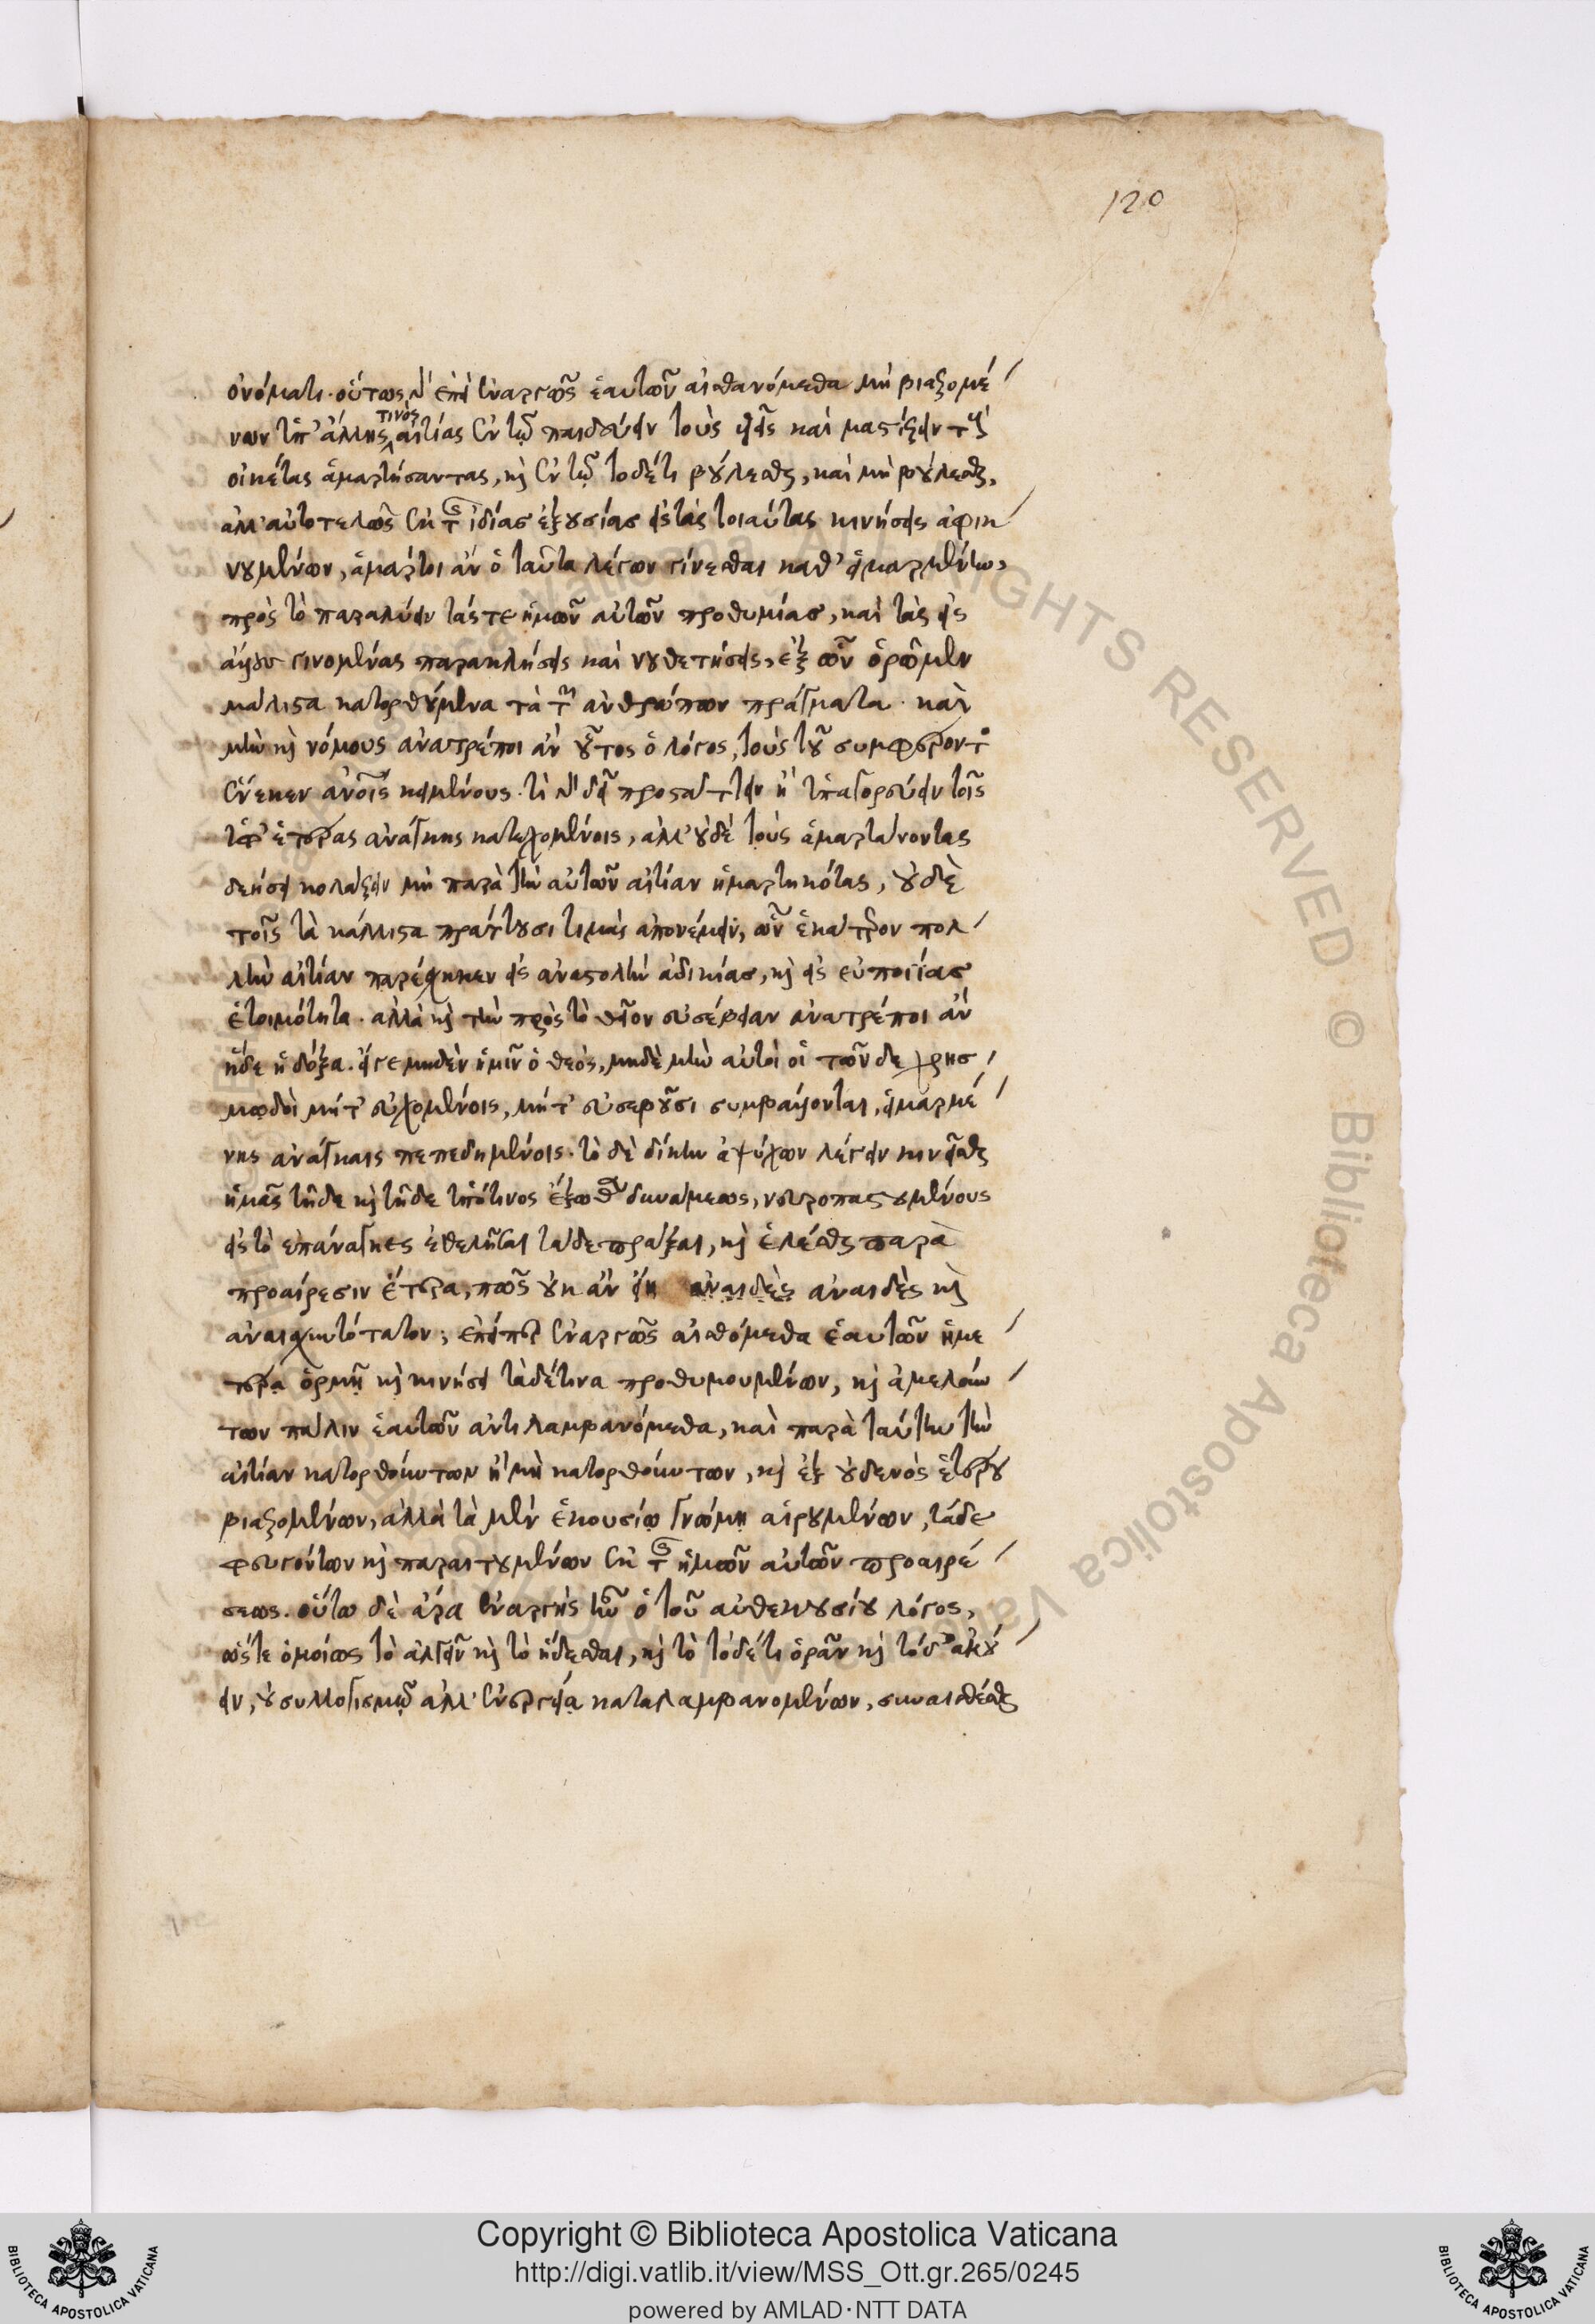 120
ὀνόματι. οὕτως δ' ἐπεὶ ἐναργῶς ἑαυτῶν αἰσθανόμεθα μὴ βιαζομέ
νων ὑπ' ἄλλης τινὸς αἰτίας ἐν τῷ παιδεύειν τοὺς υἱεῖς καὶ μαστίζειν τοὺς
οἰκέτας ἁμαρτήσαντας, κὶ ἐν τῷ τοδέτι βούλεσθαι, καὶ μὴ βούλεσθαι,
ἀλλ' αὐτοτελῶς ἐκ τῆς ἰδίας ἐξουσίας εἰς τὰς τοιαύτας κινήσεις ἀφικ
νουμένων, ἁμάρτοι ἂν ὁ ταῦτα λέγων γίνεσθαι καθ' εἱμαρμένην,
πρὸς τὸ παραλύειν τάς τε ἡμῶν αὐτῶν προθυμίας, καὶ τὰς εἰς
ἄλλους γινομένας παρακλήσεις καὶ νουθετήσεις, ἐξ ὧν ὁρῶμεν
μάλιστα κατορθούμενα τὰ τῶν ἀνθρώπων πράγματα. καὶ
μὴν κὶ νόμους ἀνατρέποι ἂν οὗτος ὁ λόγος, τοὺς τοῦ συμφέροντος
ἕνεκεν ἀνοῖς κειμένους. τί δ' δεῖ προστάττειν ἢ ὑπαγορεύειν τοῖς
ὑφ' ἑτέρας ἀνάγκης κατεχομένοις, ἀλλ' οὐδὲ τοὺς ἁμαρτάνοντας
δεήσει κολάζειν μὴ παρὰ τὴν αὐτῶν αἰτίαν ἡμαρτηκότας, οὐδὲ
τοῖς τὰ κάλλιστα πράττουσι τιμὰς ἀπονέμειν, ὧν ἑκάτερον πολ
λὴν αἰτίαν παρέσχηκεν εἰς ἀναστολὴν ἀδικίας, κὶ εἰς εὐποιΐας
ἑτοιμότητα. ἀλλὰ κὶ τὴν πρὸς τὸ θεῖον εὐσέβειαν ἀνατρέποι ἂν
ἥδε ἡ δόξα. εἴγε μηδὲν ἡμῖν ὁ θεὸς, μηδὲ μὴν αὐτοὶ οἱ τῶνδε χρησ
μῳδοὶ μήτ' εὐχομένοις, μήτ' εὐσεβοῦσι συμβάλλονται, εἱμαρμέ
νης ἀνάγκαις πεπεδημένοις. τὸ δὲ δίκην ἀψύχων λέγειν κινεῖσθαι
ἡμᾶς τῇδε κὶ τῇδε ὑπότινος ἔξωθεν δυνάμεως, νευροσπαστουμένους
εἰς τὸ ἐπάναγκες ἐθελῆσαι τάδε πρᾶξαι, κὶ ἑλέσθαι παρὰ
προαίρεσιν ἕτερα, πῶς οὐκ ἂν εἴη ἀναιδὲς ἀναιδὲς κὶ
ἀναισχυντότατον; ἐπείπερ ἐναργῶς αἰσθόμεθα ἑαυτῶν ἡμε
τέρᾳ ὁρμῇ κὶ κινήσει τὰδέτινα προθυμουμένων, κὶ ἀμελούν
των πάλιν ἑαυτῶν ἀντιλαμβανόμεθα, καὶ παρὰ ταύτην τὴν
αἰτίαν κατορθούντων ἢ μὴ κατορθούντων, κὶ ἐξ οὐδενὸς ἑτέρου
βιαζομένων, ἀλλὰ τὰ μὲν ἑκουσίῳ γνώμῃ αἱρουμένων, τάδε
φευγόντων κὶ παραιτουμένων ἐκ τῆς ἡμῶν αὐτῶν προαιρέ
σεως. οὕτω δὲ ἄρα ἐναργὴς ἦν ὁ τοῦ αὐθεκουσίου λόγος,
ὥστε ὁμοίως τὸ ἀλγεῖν κὶ τὸ ἥδεσθαι, κὶ τὸ τόδέτι ὁρᾶν κὶ τόδ' ἀκού
ειν, οὐ συλλογισμῷ ἀλλ' ἐνεργείᾳ καταλαμβανομένων, συναισθέσθαι
Copyright © Biblioteca Apostolica Vaticana
http://digi.vatlib.it/view/MSS_Ott.gr.265/0245
powered by AMLAD·NTT DATA